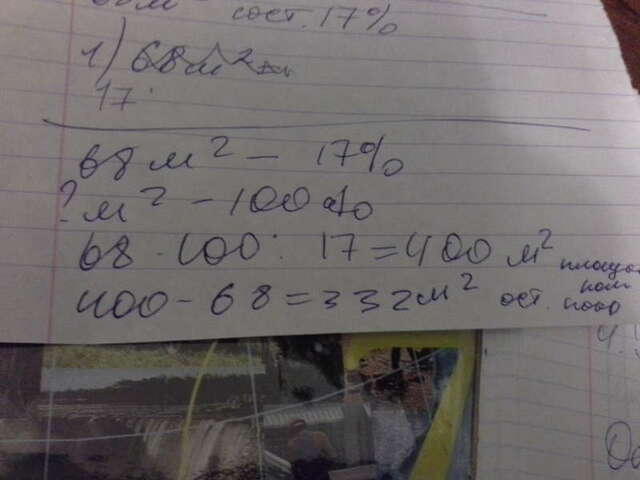 сост. 17%
1) 68 м²
17
68 м² - 17%
? м² - 100%
68 · 100 : 17 = 400 м²
400 - 68 = 332 м² ост.